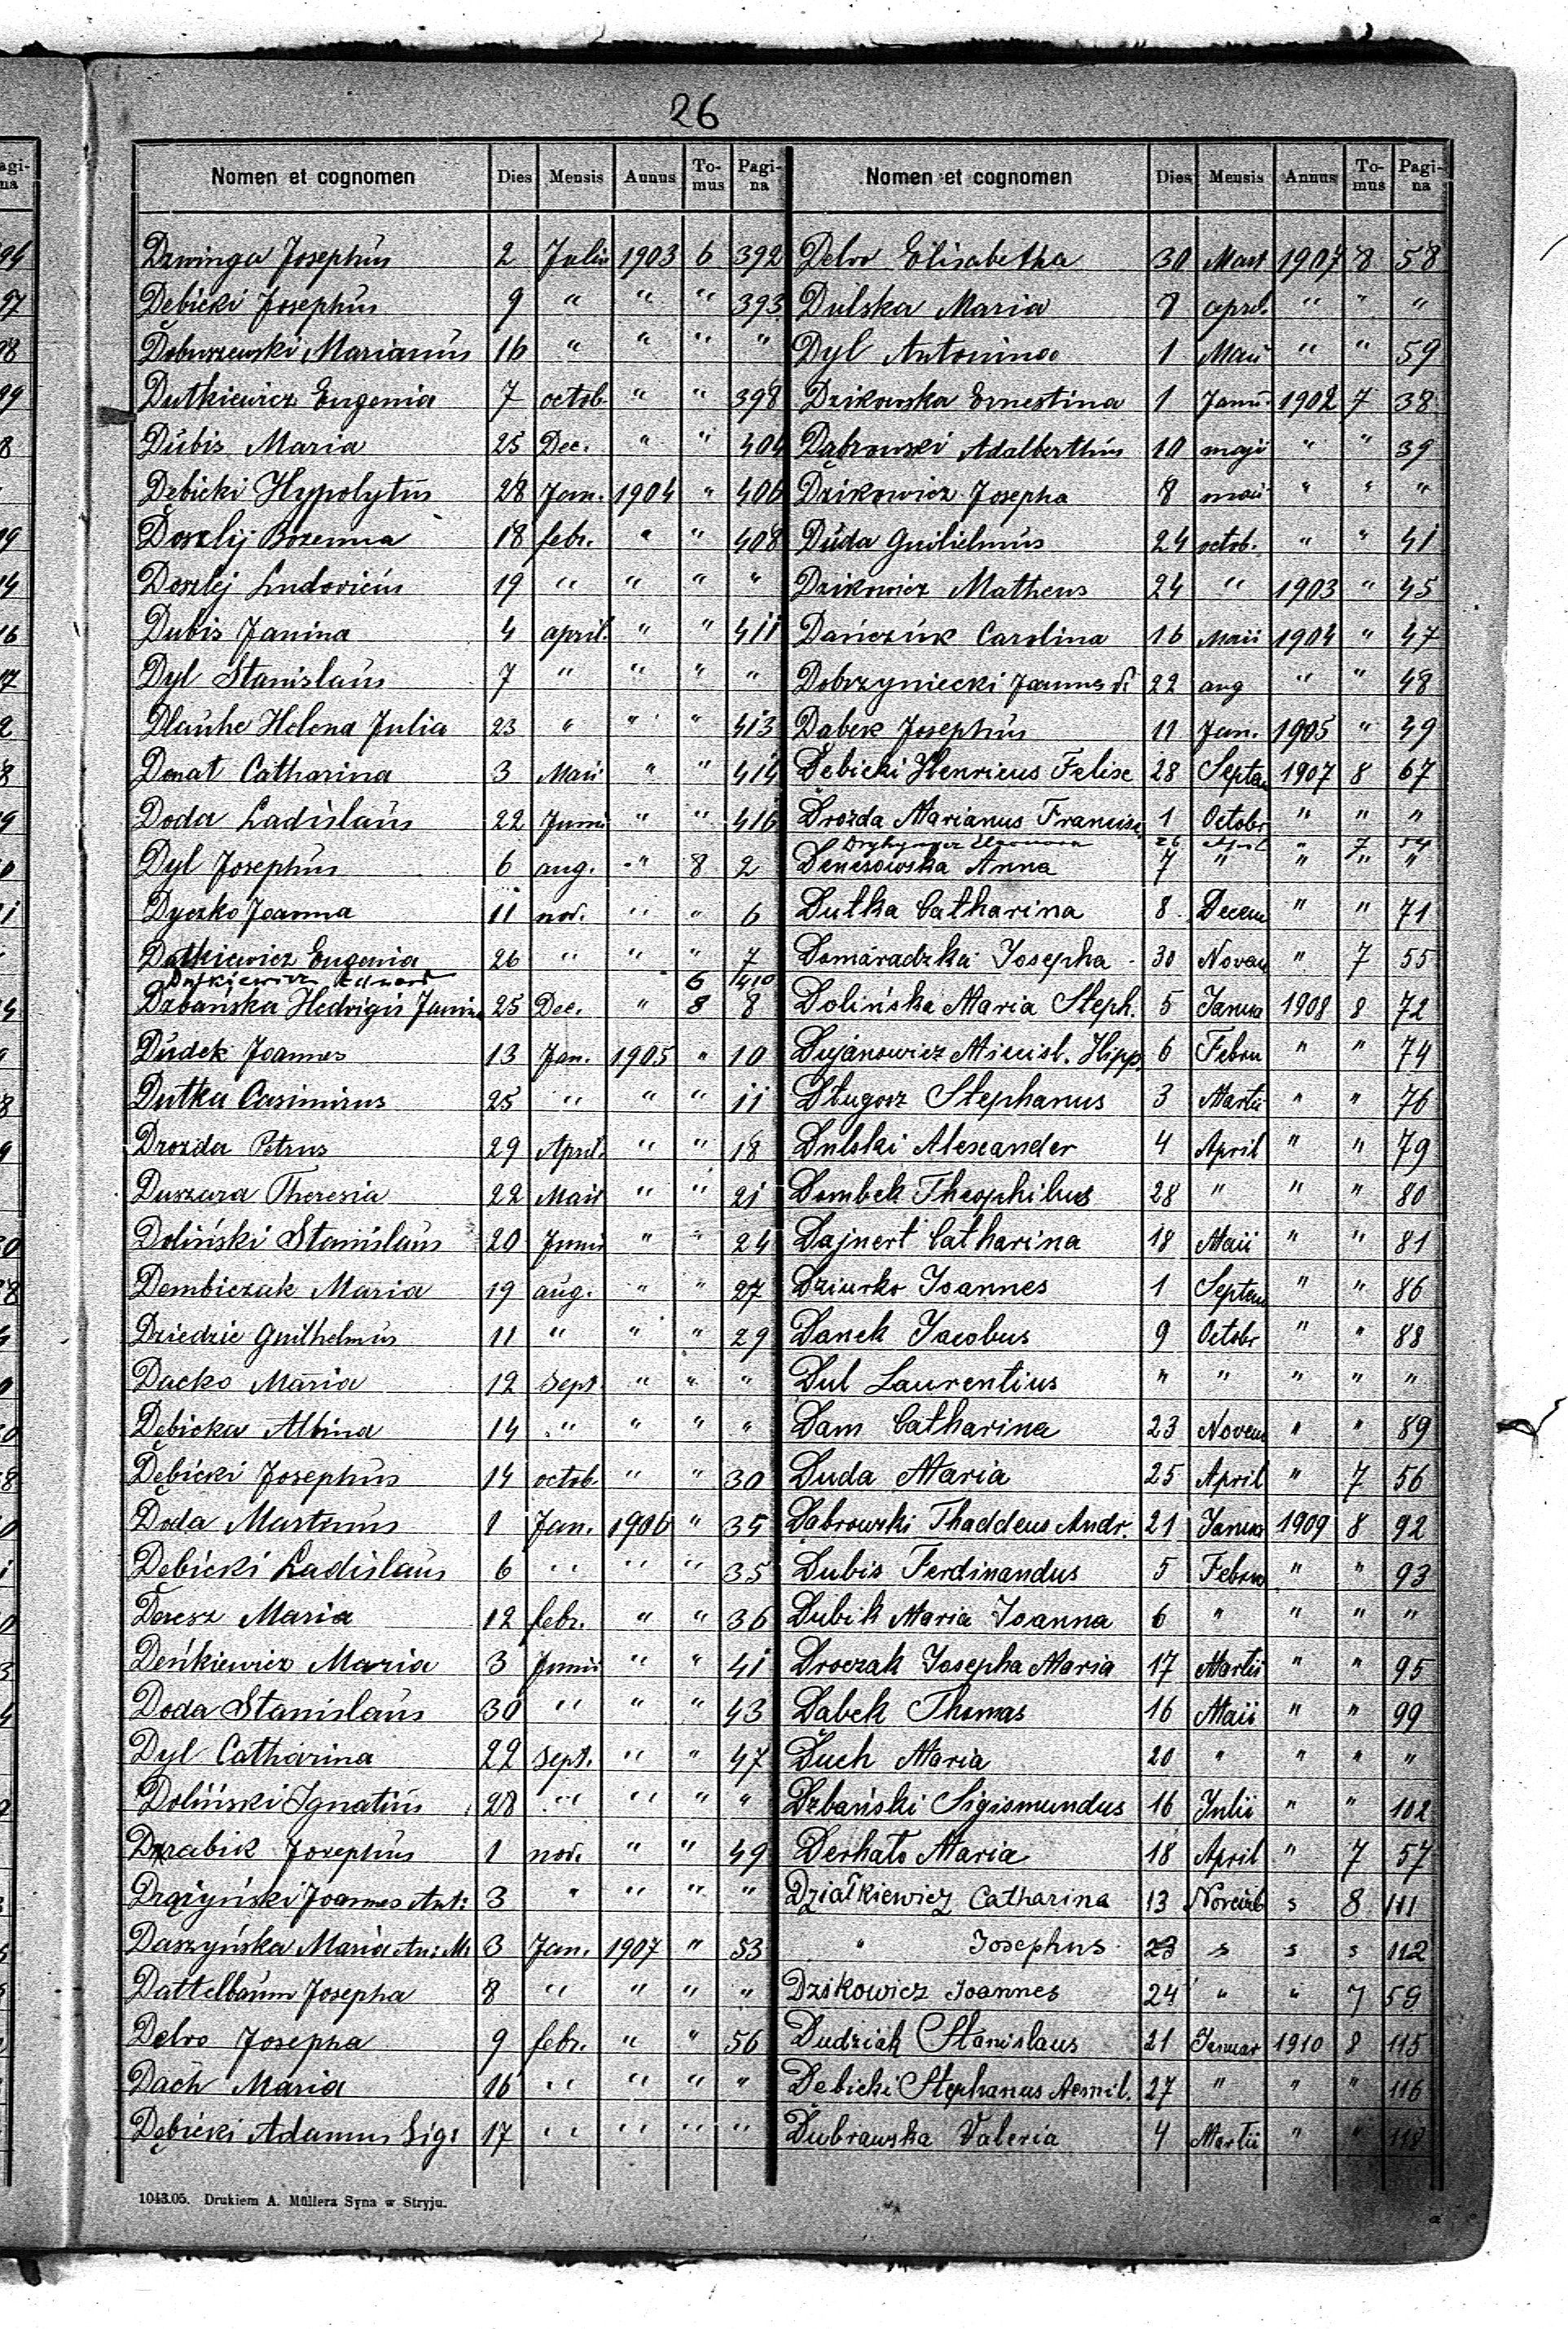 26
Nomen et cognomen Dies Mensis Annus To-mus Pagi-na
Dzwinga Josephus 2 Julii 1903 6 392
Dębicki Josephus 9 " " " 393
Dobuszewski Marianus 16 " " " "
Dutkiewicz Eugenia 7 octob. " " 398
Dubis Maria 25 Dec. " " 404
Dębicki Hypolytus 28 Jan. 1904 " 406
Doszlij Bozenna 18 febr. " " 408
Doszlej Ludovicus 19 " " " "
Dubis Janina 4 april. " " 411
Dyl Stanislaus 7 " " " "
Dlauhe Helena Julia 23 " " " 413
Donat Catharina 3 Maii " " 414
Doda Ladislaus 22 Junii " " 416
Dyl Josephus 6 aug. " 8 2
Dyczko Joanna 11 nov. " " 6
Dutkiewicz Eugenia 26 " " " 7
Dutkiewicz Eduard 6 410
Dzbańska Hedvigis Janina 25 Dec. " 8 8
Dudek Joannes 13 Jan. 1905 " 10
Dutka Casimirus 25 " " " 11
Drozda Petrus 29 April. " " 18
Duszara Theresia 22 Maii " " 21
Doliński Stanislaus 20 Junii " " 24
Dembiczak Maria 19 aug. " " 27
Dziedzic Guilhelmus 11 " " " 29
Dacko Maria 12 Sept. " " "
Dębicka Albina 14 " " " "
Dębicki Josephus 14 octob. " " 30
Doda Martinus 1 Jan. 1906 " 35
Dębicki Ladislaus 6 " " " 35
Deresz Maria 12 febr. " " 36
Deńkiewicz Maria 3 Junii " " 41
Doda Stanislaus 30 " " " 43
Dyl Catharina 22 Sept. " " 47
Doliński Ignatius 28 " " " "
Drabik Josephus 1 nov. " " 49
Drążyński Joannes Ant: 3 " " " "
Daszyńska Maria An: M. 3 Jan. 1907 " 53
Dattelbaum Josepha 8 " " " "
Delvo Josepha 9 febr. " " 56
Dach Maria 16 " " " "
Dębicki Adamus Sigi 17 " " " "
1043.05. Drukiem A. Müllera Syna w Stryju.
Nomen et cognomen Dies Mensis Annus To-mus Pagi-na
Delvo Elisabetha 30 Mart 1907 8 58
Dulska Maria 8 april. " " "
Dyl Antonina 1 Maii " " 59
Dzikowska Ernestina 1 Janu. 1902 7 38
Dąbrowski Adalberthus 10 maji " " 39
Dzikowicz Josepha 8 maii " " "
Duda Guilielmus 24 octob. " " 41
Dzikowicz Matheus 24 " 1903 " 45
Dańczuk Carolina 16 Maii 1904 " 47
Dobrzyniecki Joannes 22 aug " " 48
Dąbek Josephus 11 Jan. 1905 " 49
Dębicki Henricus Felix 28 Septem 1907 8 67
Drozda Marianus Francisc. 1 Octobr " " "
26 7 54
Denesowska Anna 7 " " " "
Dutka Catharina 8 Decem " " 71
Domaradzka Josepha 30 Novem " 7 55
Dolińska Maria Steph. 5 Janua 1908 8 72
Dujanowicz Miecisl. Hipp. 6 Febru " " 74
Długosz Stephanus 3 Martii " " 76
Dulski Alexander 4 April " " 79
Dombek Theophilus 28 " " " 80
Dajnert Catharina 18 Maii " " 81
Dziurko Joannes 1 Septem " " 86
Danek Jacobus 9 Octobr " " 88
Dul Laurentius " " " " "
Dam Catharina 23 Novem " " 89
Duda Maria 25 April " 7 56
Dąbrowski Thaddeus Andr. 21 Janua 1909 8 92
Dubis Ferdinandus 5 Febru " " 93
Dubik Maria Joanna 6 " " " "
Droczak Josepha Maria 17 Martii " " 95
Dąbek Thomas 16 Maii " " 99
Duch Maria 20 " " " "
Dzbański Sigismundus 16 Julii " " 102
Derhato Maria 18 April " 7 57
Działkiewicz Catharina 13 Novemb s 8 111
" Josephus 23 s s s 112
Dzikowicz Joannes 24 " " 7 59
Dudziak Stanislaus 21 Januar 1910 8 115
Dębicki Stephanus Aemil. 27 " " " 116
Dubrawska Valeria 4 Martii " " 118